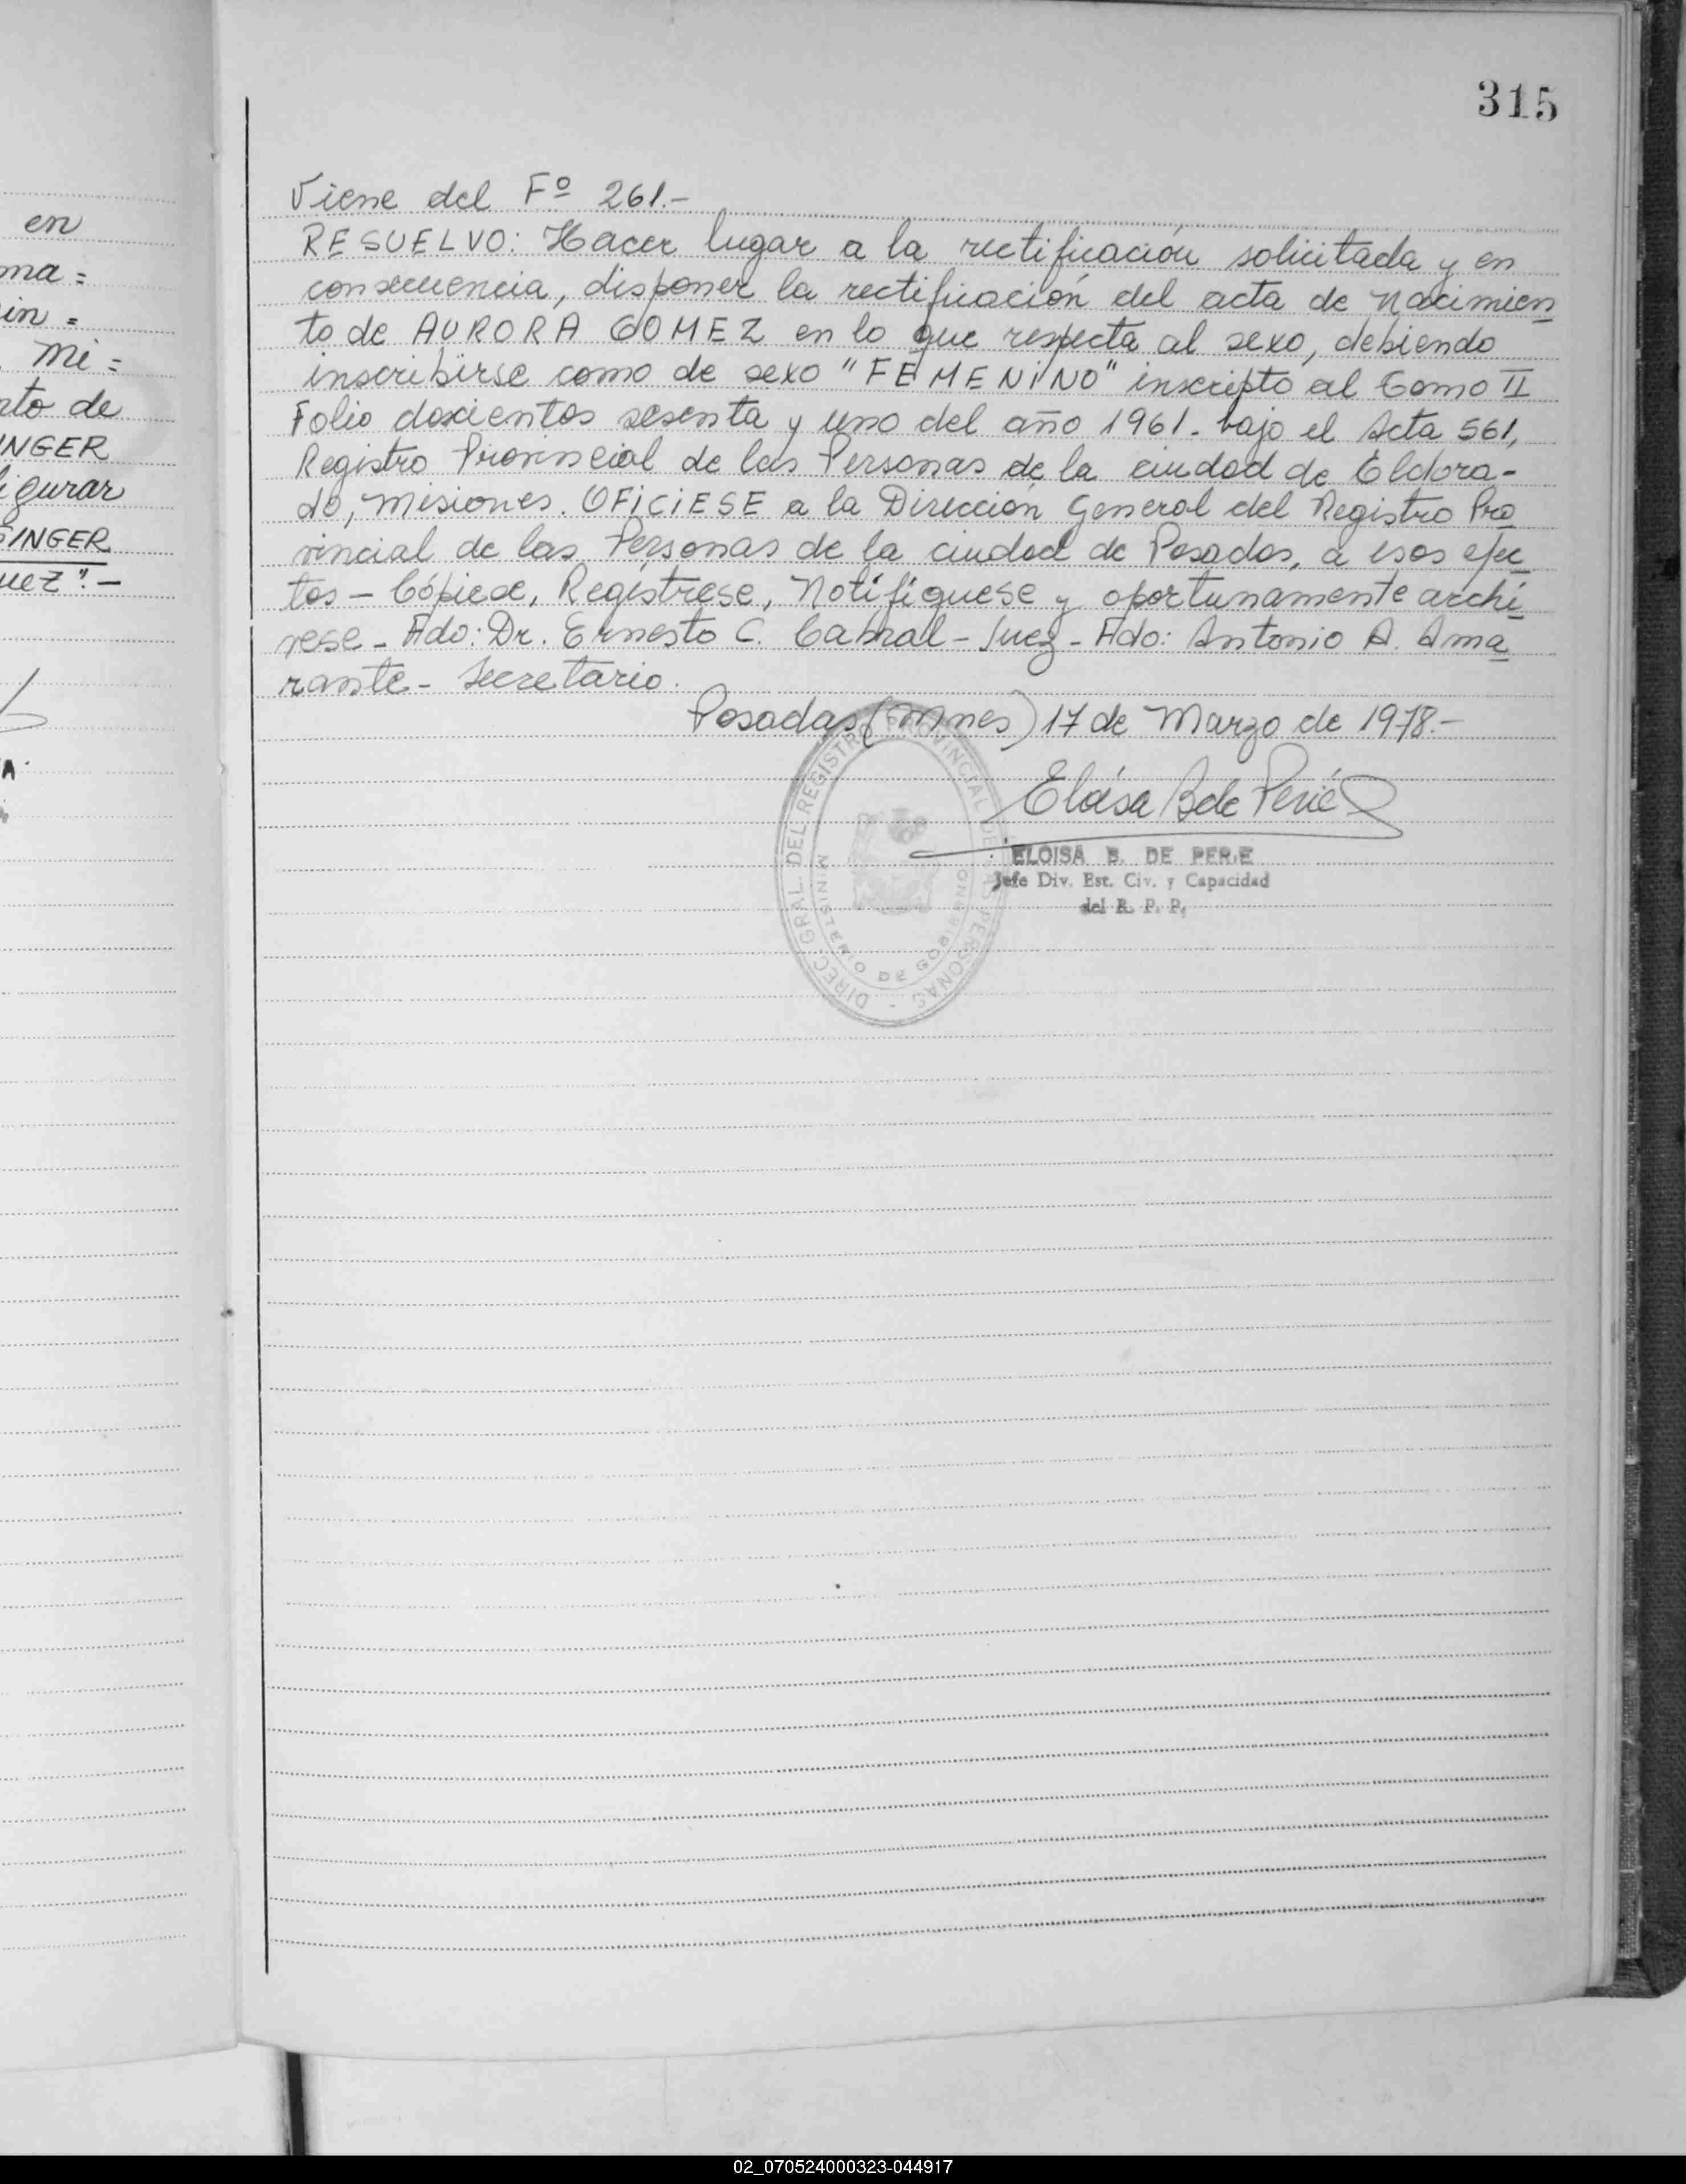 315
en
ma=
in=
mi=
nto de
INGER
igurar
SINGER
uez".-
A.
Viene del Fº 261.-
RESUELVO: Hacer lugar a la rectificación solicitada y en
consecuencia, disponer la rectificación del acta de nacimien
to de AURORA GOMEZ en lo que respecta al sexo, debiendo
inscribirse como de sexo "FEMENINO" inscripto al Tomo II
Folio doscientos sesenta y uno del año 1961. bajo el Acta 561,
Registro Provincial de las Personas de la ciudad de Eldora-
do, Misiones. OFICIESE a la Dirección General del Registro Pro
vincial de las Personas de la ciudad de Posadas, a esos efec
tos - Cópiese, Regístrese, Notifíquese y oportunamente archí
vese - Fdo: Dr. Ernesto C. Cabral - Juez - Fdo: Antonio A. Ama
rante - Secretario.
Posadas (Mnes) 17 de Marzo de 1978.-
Eloisa B de Perié
ELOISA B. DE PERIE
Jefe Div. Est. Civ. y Capacidad
del R. P. P.
DIREC. GRAL. DEL REGISTRO PROVINCIAL DE LAS PERSONAS -
MINISTERIO DE GOBIERNO
02_070524000323-044917